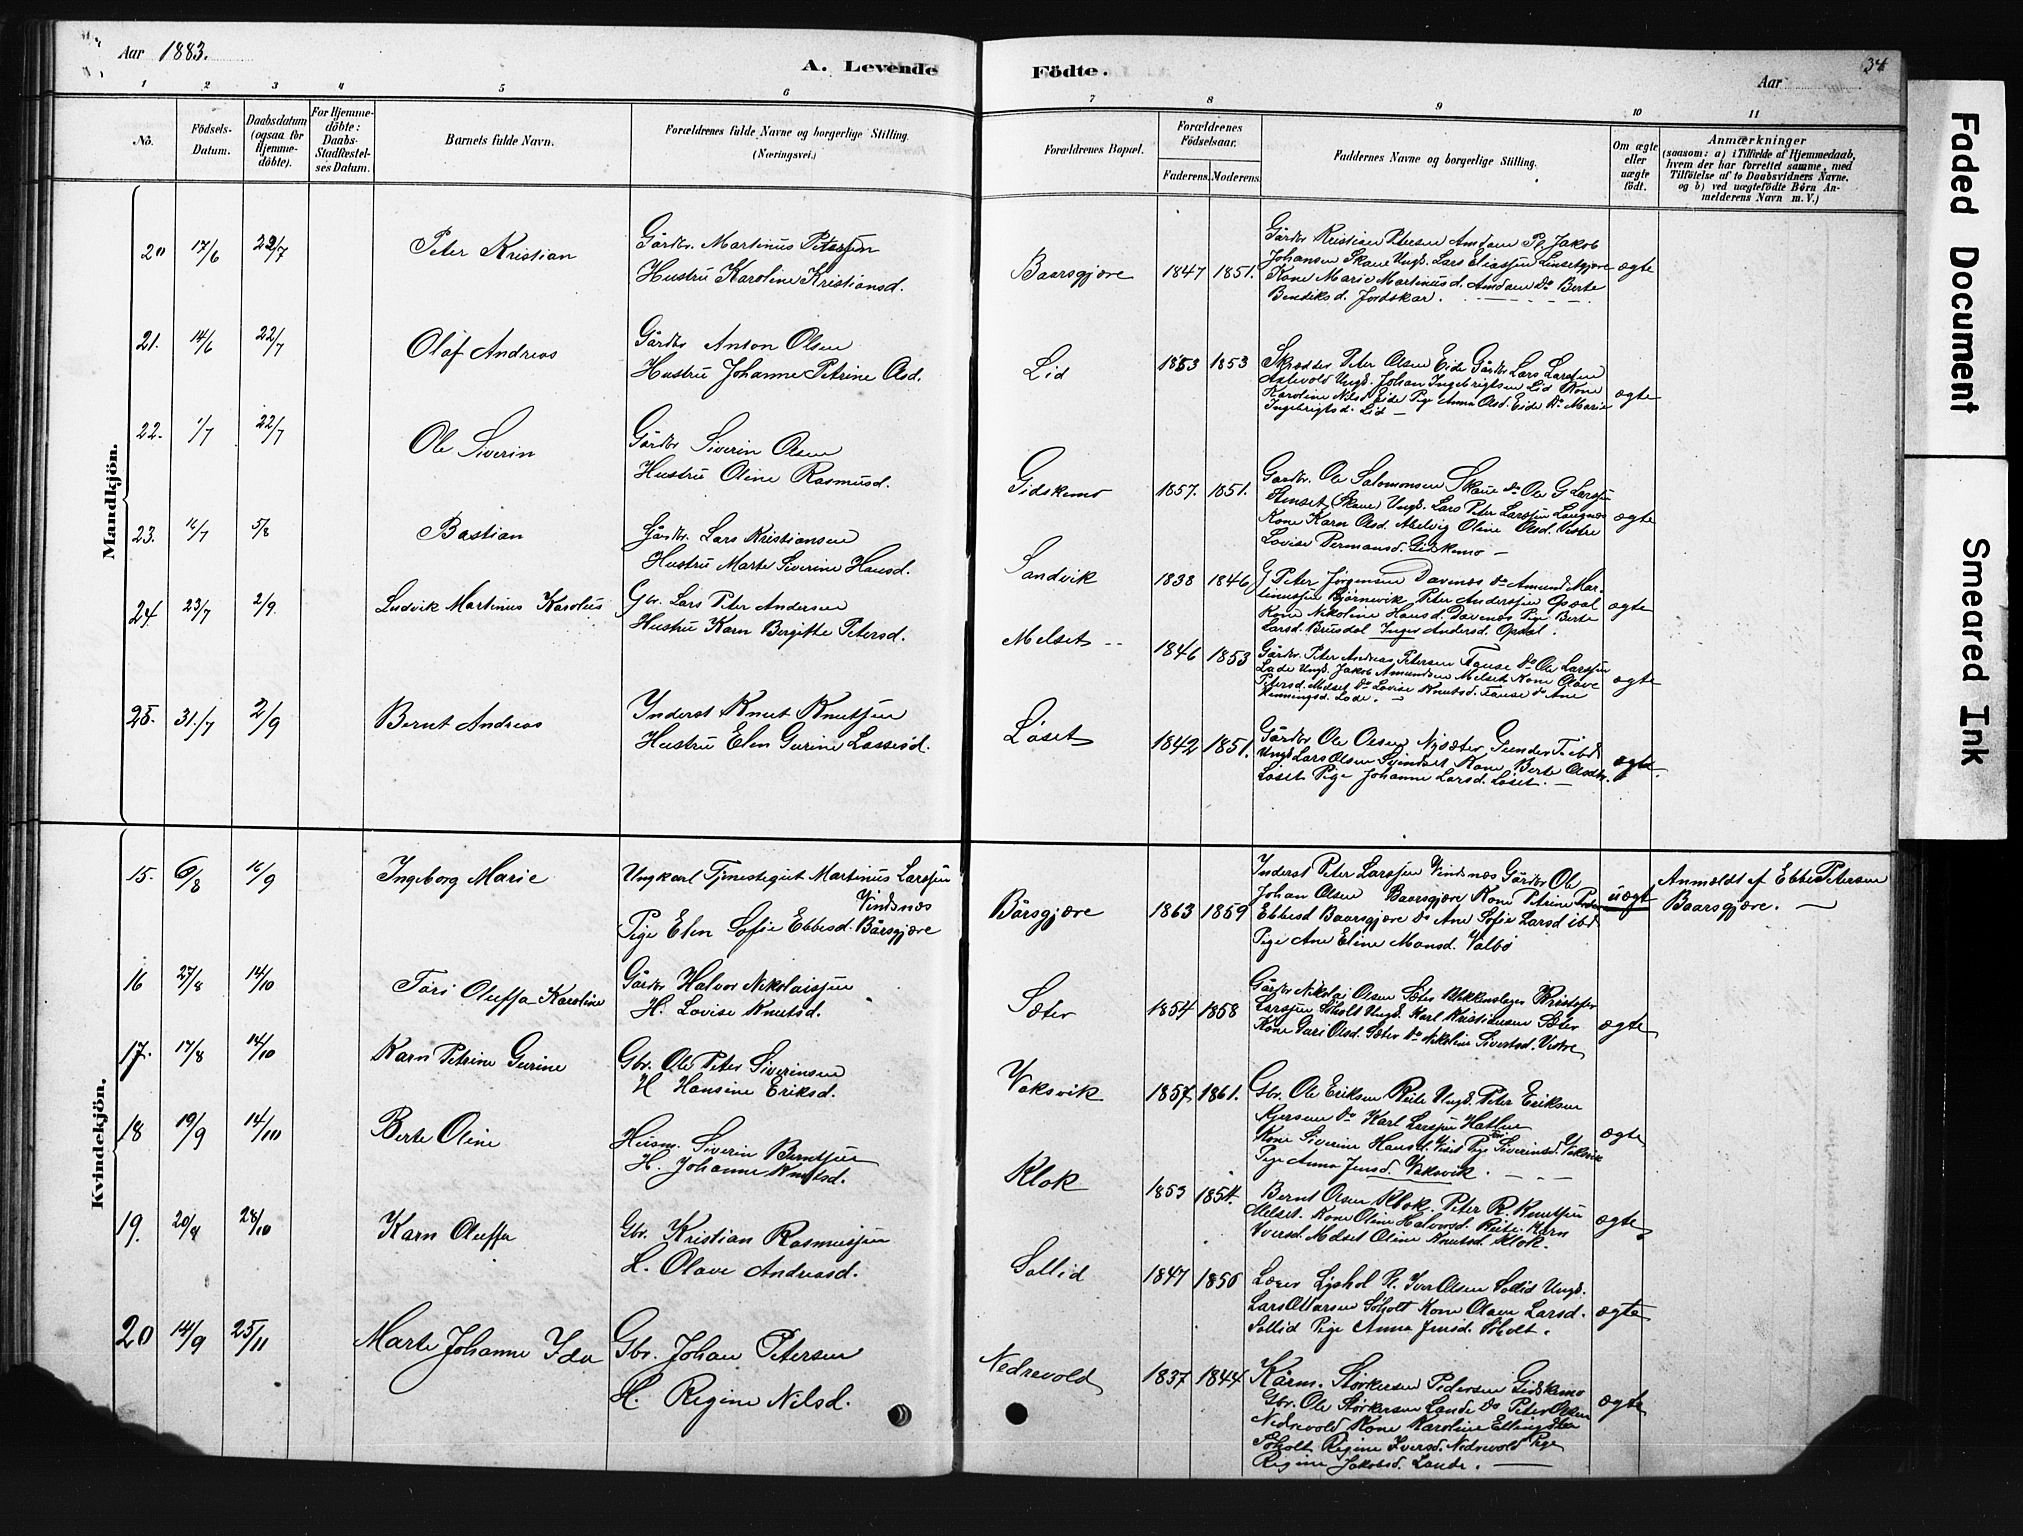 Aar 1883.
A. Levende Födte.
Aar
34
1 2 3 4 5 6 7 8 9 10 11
No.
Födsels-Datum.
Daabsdatum (ogsaa for Hjemme-döbte).
For Hjemme-döbte: Daabs-Stadfæstel-ses Datum.
Barnets fulde Navn.
Forældrenes fulde Navne og borgerlige Stilling. (Næringsvei.)
Forældrenes Bopæl.
Forældrenes Födselsaar.
Faderens. Moderens.
Faddernes Navne og borgerlige Stilling.
Om ægte eller uægte födt.
Anmærkninger
(saasom: a) i Tilfælde af Hjemmedaab,
hvem der har forrettet samme, med
Tilföielse af to Daabsvidners Navne.
og b) ved uægtefödte Börn An-
melderens Navn m. V.)
Mandkjön.
20 17/6 22/7 Peter Kristian
Gårdbr. Martinus Peterssen
Hustru Karoline Kristiansd.
Baarsgjøre 1847 1851.
Gårdbr Kristian Petersen Amdam Pl. Jakob
Johansen Skaue Ungk. Lars Eliassen Linsetgjøre
Kone Marie Martinusd. Amdam Do Berte
Bendiksd. Jordskar.
ægte
21. 14/6 22/7 Olaf Andreas
Gårdbr Anton Olsen
Hustru Johanne Petrine Olsd.
Lid 1853 1853
Skrædder Peter Olsen Eide Gårdbr. Lars Larssen
Ungk. Johan Ingebrigtsen Lid Kone
Karoline Nilsd Eide Pige Anna Olsd. Eide Do Marie
Ingebrigtsd. Lid —
ægte
22. 1/7 22/7 Ole Siverin
Gårdbr Siverin Olsen
Hustru Oline Rasmusd.
Gidskemo 1857. 1851.
Gårdbr. Ole Salomonsen Skaue do Ole G Larssen
Skaue Ungk. Lars Peter Larssen Langnes
Kone Karn Olsd. Oline Olsd. Vestre
Lovise Permansd. Gidskemo —
ægte
23. 16/7 5/8 Bastian
Gårdbr. Lars Kristiansen
Hustru Marte Siverine Hansd.
Sandvik 1838 1846
G Peter Jørgensen Davenes do Amund Mar-
tinussen Bjørnevik Peter Anderssen Opdal
Kone Nikoline Hansd. Davenes Pige Berte
Larsd. Brusdal Inger Andersd. Opdal.
ægte
24. 23/7 2/9. Ludvik Martinus Karolus
Gbr. Lars Peter Andersen
Hustru Karn Bergitte Petersd.
Melset 1846 1853
Gårdbr. Peter Andreas Petersen Fause Do Ole Larssen
Lade Ungk. Jakob Amundsen Melset Kone Olave
Petersd. Melset Do Lovise Knutsd. Fause do Ane
Henningsd. Lade. —
ægte
25. 31./7 2/9 Bernt Andreas
Inderst Knut Knutsen
Hustru Elen Gurine Lassesd.
Løset 1842 1851.
Gårdbr Ole Olsen Nysæter Gunder T. ibd
Ungk Lars Olsen Svindset Kone Berte Olsdtr.
Løset Pige Johanne Larsd. Løset. —
ægte.
Kvindekjön.
15. 6/8 16/9 Ingeborg Marie
Ungkarl Tjenestegut Martinus Larssen
Vindsnæs
Pige Elen Sofie Ebbesd. Bårsgjære
Bårsgjære 1863 1859
Inderst Peter Larssen Vindsnæs Gårdbr Ole
Johan Olsen Baarsgjære Kone Petrine
Ebbesd Baarsgjære Do Ane Sofie Larsd ibd
Pige Ane Eline Monsd. Valbø
uægt
Anmeldt af Ebbe Petersen
Baarsgjøre. —
16 27/8 14/10 Turi Oluffa Karoline
Gårdbr Halvor Nikolaissen
H. Lovise Knutsd.
Sæter 1854 1858
Gårdbr Nikolai Olsen Sæter Blikkenslager Kristofer
Larssen Søholt Ungk. Karl Kristiansen Sæter
Kone Guri Olsd. Sæter Do Nikoline Sivertsd. Vestre
ægte
17. 17/8 14/10 Karn Petrine Gurine
Gbr. Ole Peter Siverinsen
H Hansine Eriksd.
Vaksvik 1857 1861.
Gbr. Ole Eriksen Reite Ungk. Peter Eriksen
Do Karl Larssen Hatlen
Kone Siverine Hansd. Pige Siverinsd. Vaksvik
Pige Anna Jensd. Vaksvik.
ægte
18 19/9 14/10 Berte Oline
Husm. Siverin Berntsen
H. Johanne Knutsd.
Klok 1853 1854.
Bernt Olsen Klok. Peter R. Knutsen
Melset. Kone Oline Halvorsd. Reite. Karn
Iversd. Melset Oline Knutsd. Klok.
ægte
19. 20/9 28/10 Karn Oluffa
Gbr. Kristian Rasmussen
H. Olave Andreasd.
Sollid 1847 1850
Lærer Lyshol Pl. Ivar Olsen Sollid Ungk.
Lars Ottarsen Søholt Kone Olave Larsd.
Sollid Pige Anna Jensd. Søholt.
ægte
20 14/9 25/11 Marte Johanne Ida
Gbr. Johan Petersen
H. Regine Nilsd.
Nedrevold 1837 1844
Kårm. Størkersen Pedersen Gidskemo
Gbr. Ole Størkersen Lande Do Peter Olsen
Nedrevold Kone Karoline Ellingsdtr
Søholt Regine Iversd. Nedrevold Pige
Regine Jakobsd. Lande. —
ægte
Faded Document
Smeared Ink